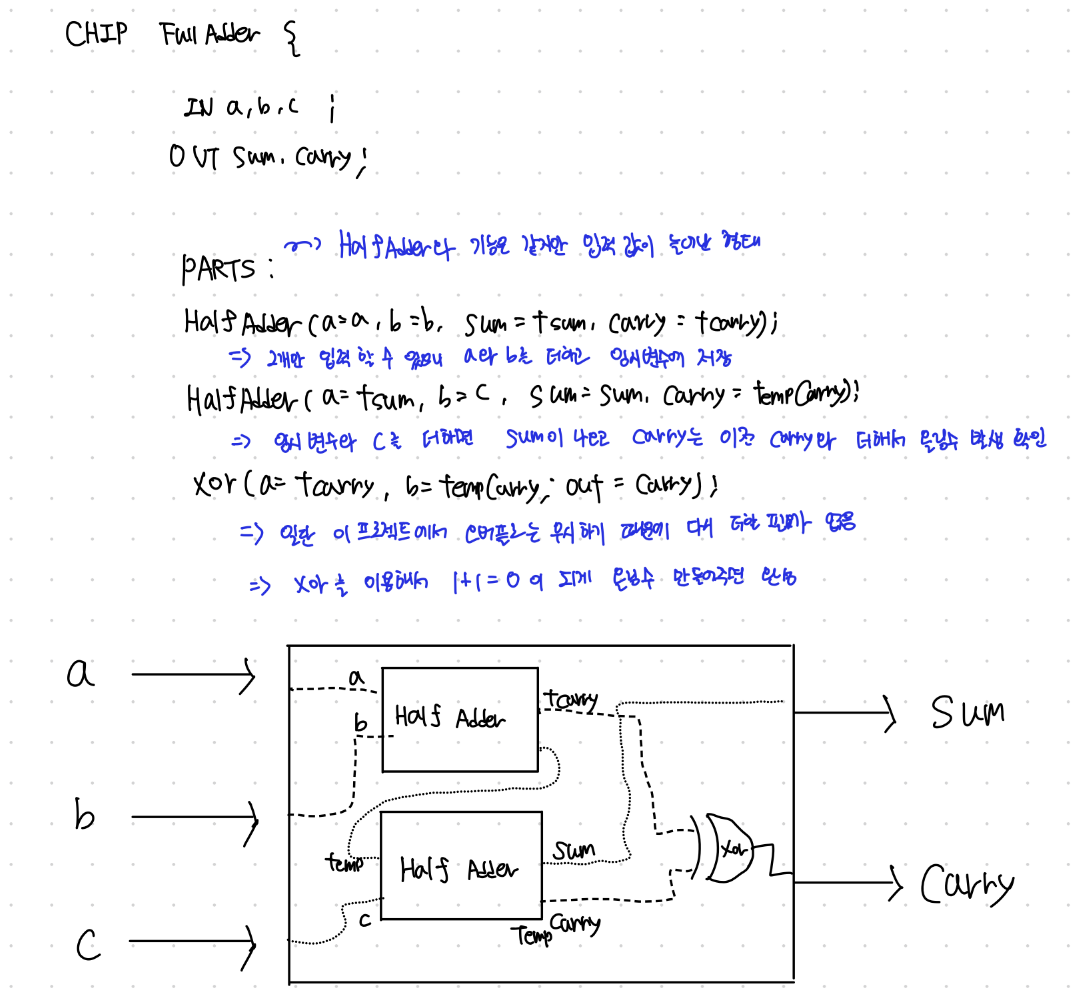 CHIP Full Adder {
IN a, b, c ;
OUT Sum, Carry ;
~> Half Adder와 기능은 같지만 입력 값이 늘어난 형태
PARTS :
Half Adder (a=a, b=b, sum = tsum, carry = tcarry);
=> 2개만 입력 할 수 있으니 a와 b를 더하고 임시변수에 저장
Half Adder ( a= tsum, b= c, sum= sum, carry = tempCarry);
=> 임시 변수와 c를 더하면 sum이 나오고 carry는 이전 carry와 더해서 올림수 발생 확인
Xor (a= tcarry, b= tempCarry, out = carry);
=> 일단 이 프로젝트에서 오버플로는 무시하기 때문에 다시 더할 필요가 없음
=> Xor 을 이용해서 1+1=0 이 되게 올림수 만들어주면 완성
a
a
Half Adder
tcarry
Sum
b
b
temp
Half Adder
Sum
Xor
Carry
c
c
Temp Carry